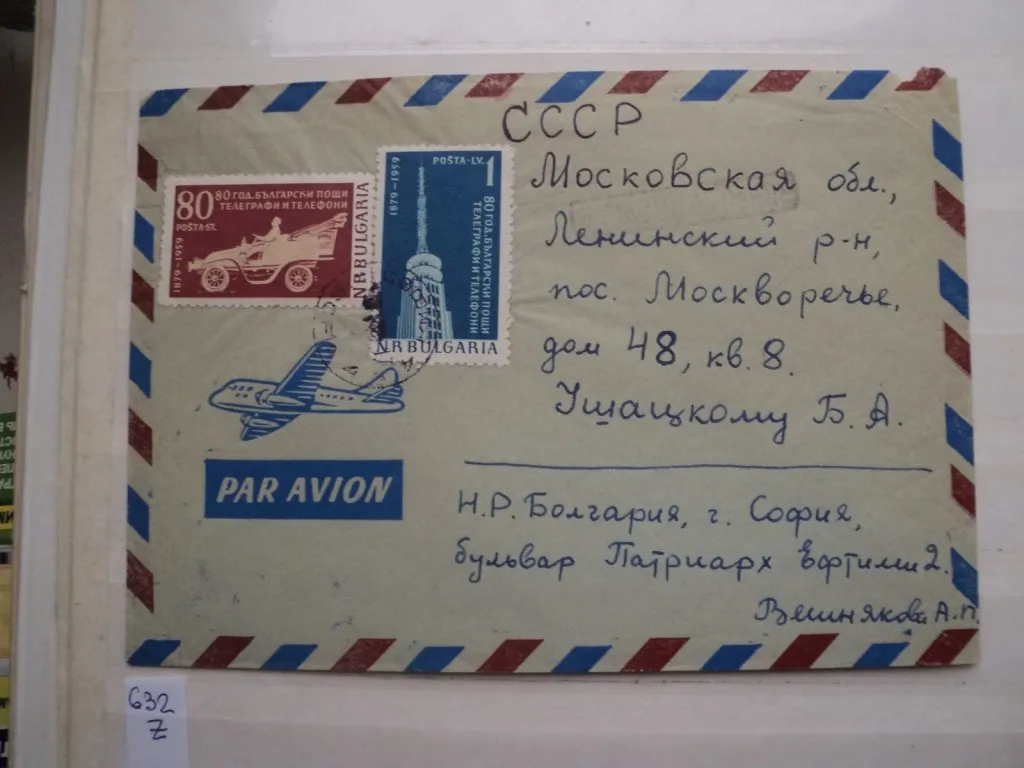 СССР
Московская обл.,
Ленинский р-н,
пос. Москворечье,
дом 48, кв. 8.
Ушацкому Б. А.
Н.Р. Болгария, г. София,
бульвар Патриарх Евтимии 2.
Вешнякова А.П.
80
80 ГОД. БЪЛГАРСКИ ПОЩИ
ТЕЛЕГРАФИ И ТЕЛЕФОНИ
POŠTA·ST.
1879–1959
N.R BULGARIA
1879–1959
POŠTA·LV. 1
80 ГОД. БЪЛГАРСКИ ПОЩИ
ТЕЛЕГРАФИ И ТЕЛЕФОНИ
N.R BULGARIA
PAR AVION
632
Z